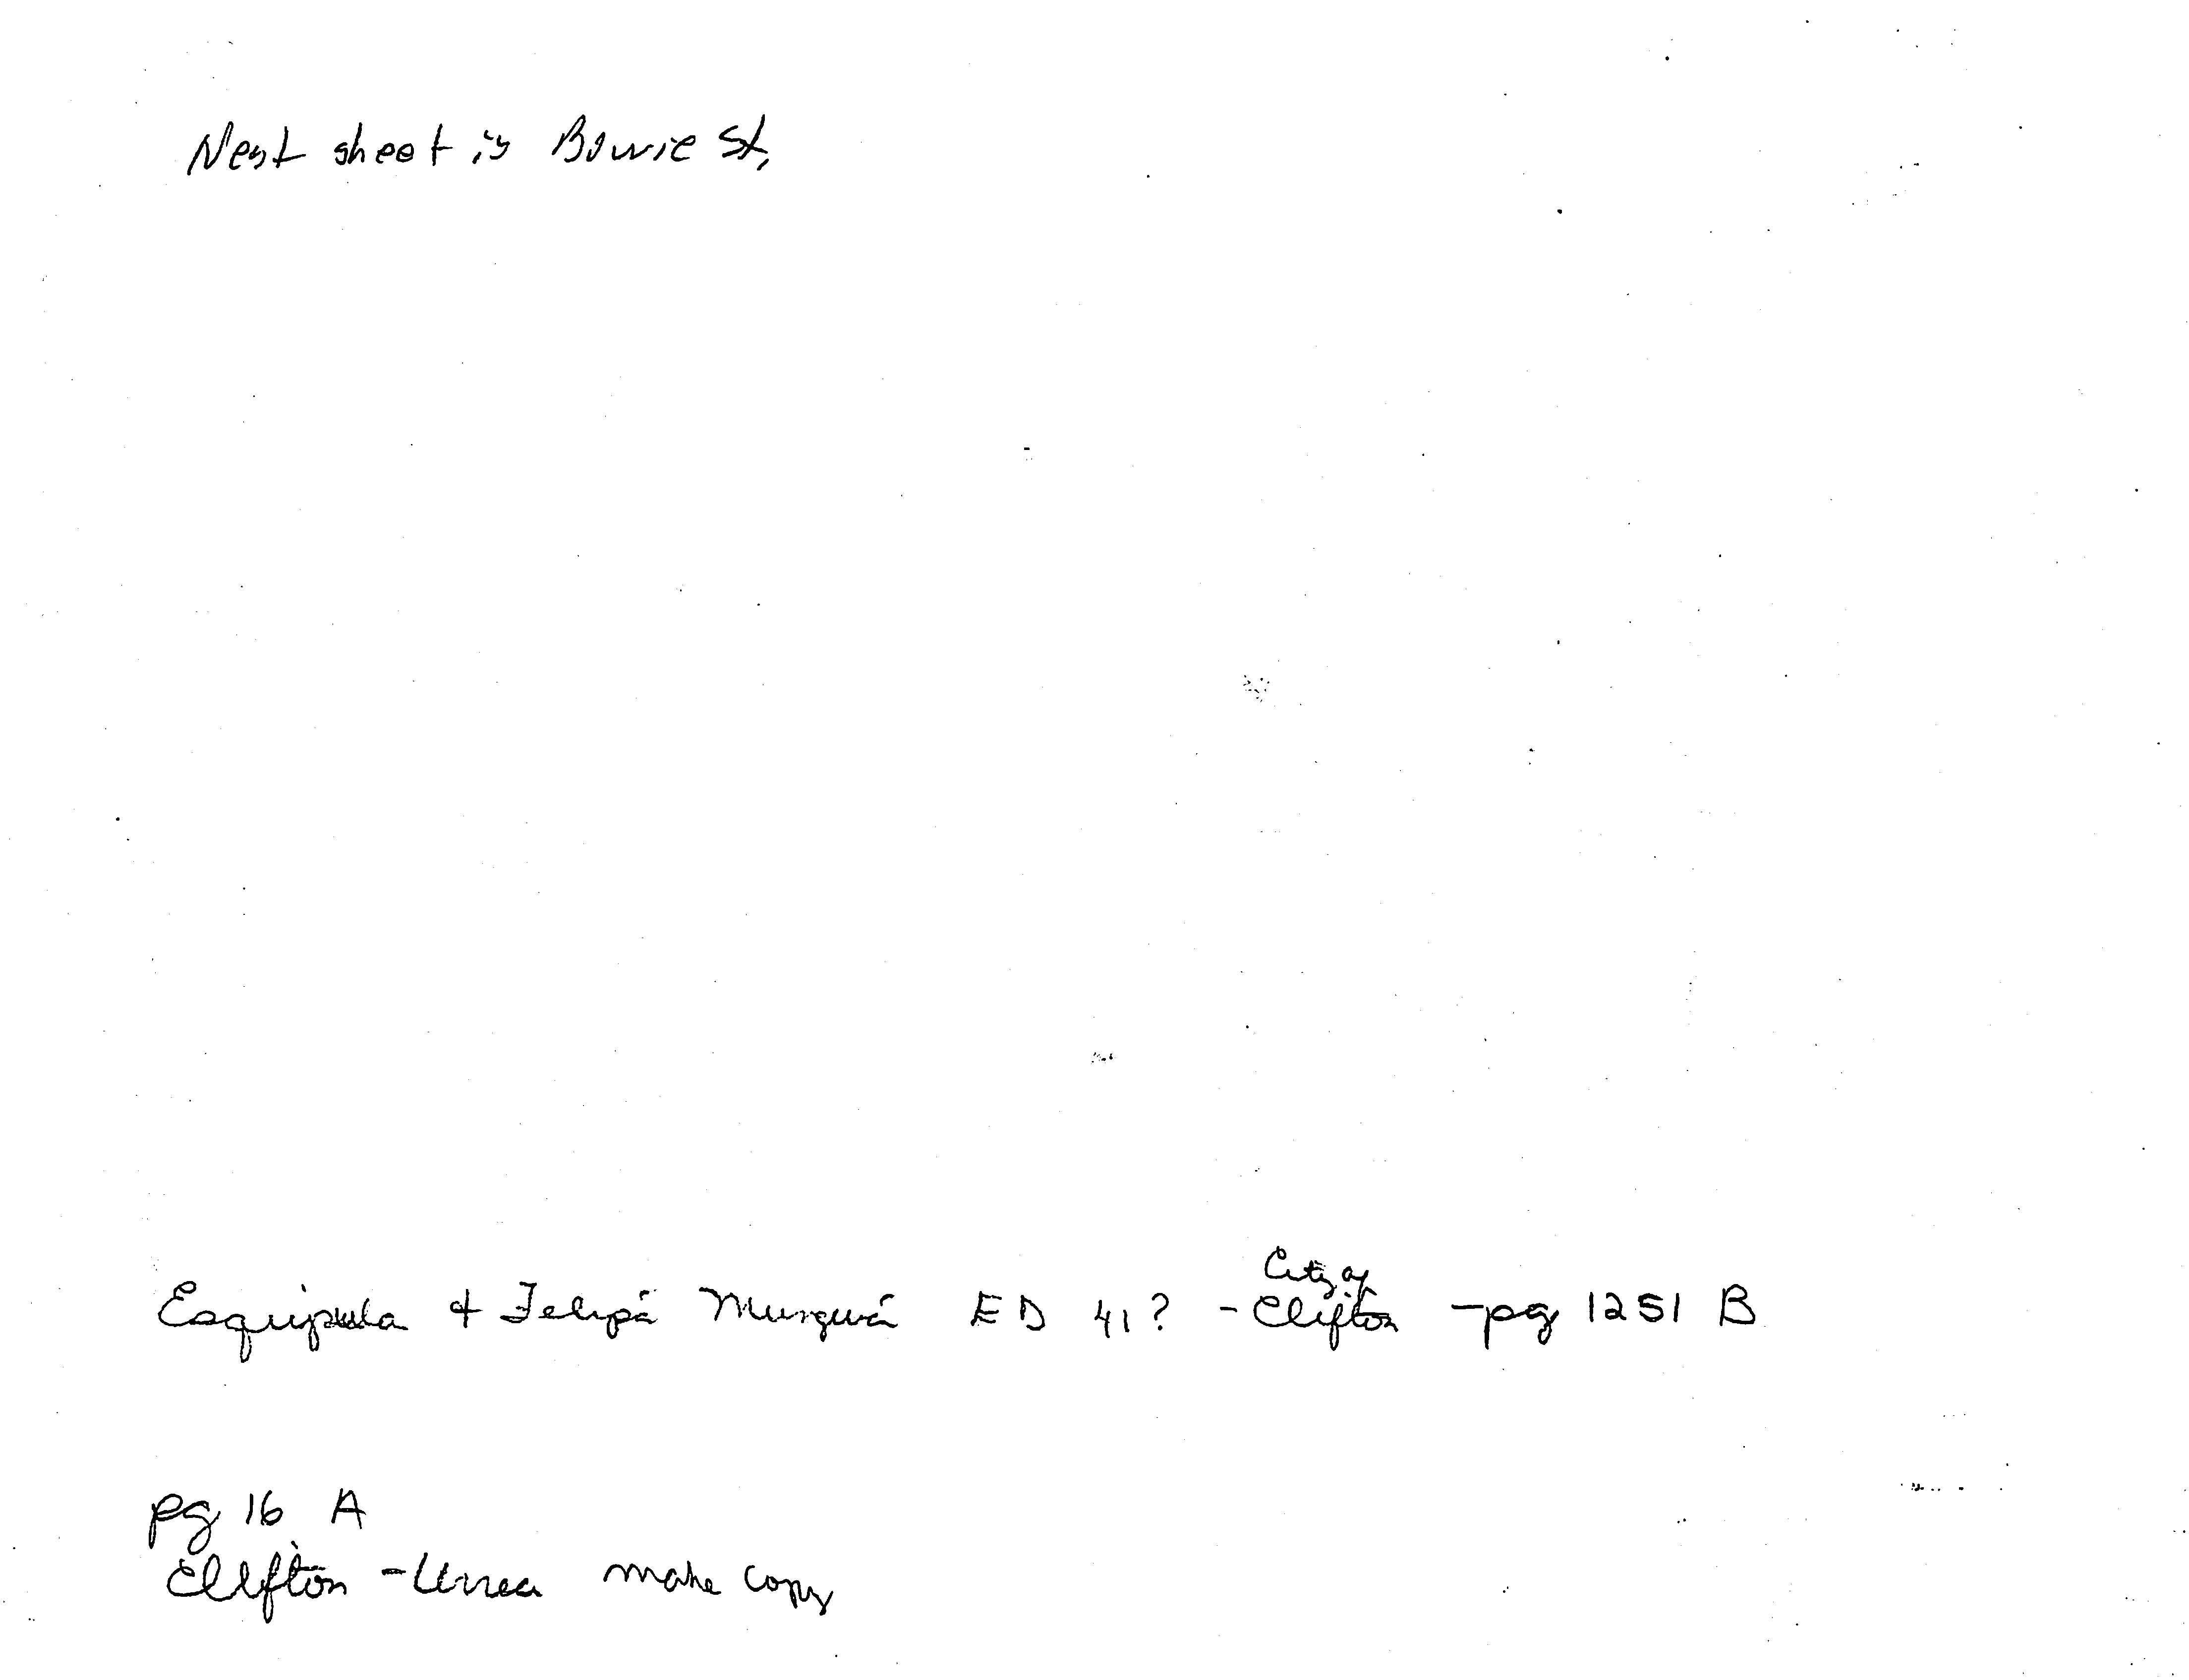 Next sheet is Bowie St.
City of
Esquipula & Felipá Munguiá ED 41? - Clifton - pg 1251 B
pg 16 A
Clifton - Urrea make copy